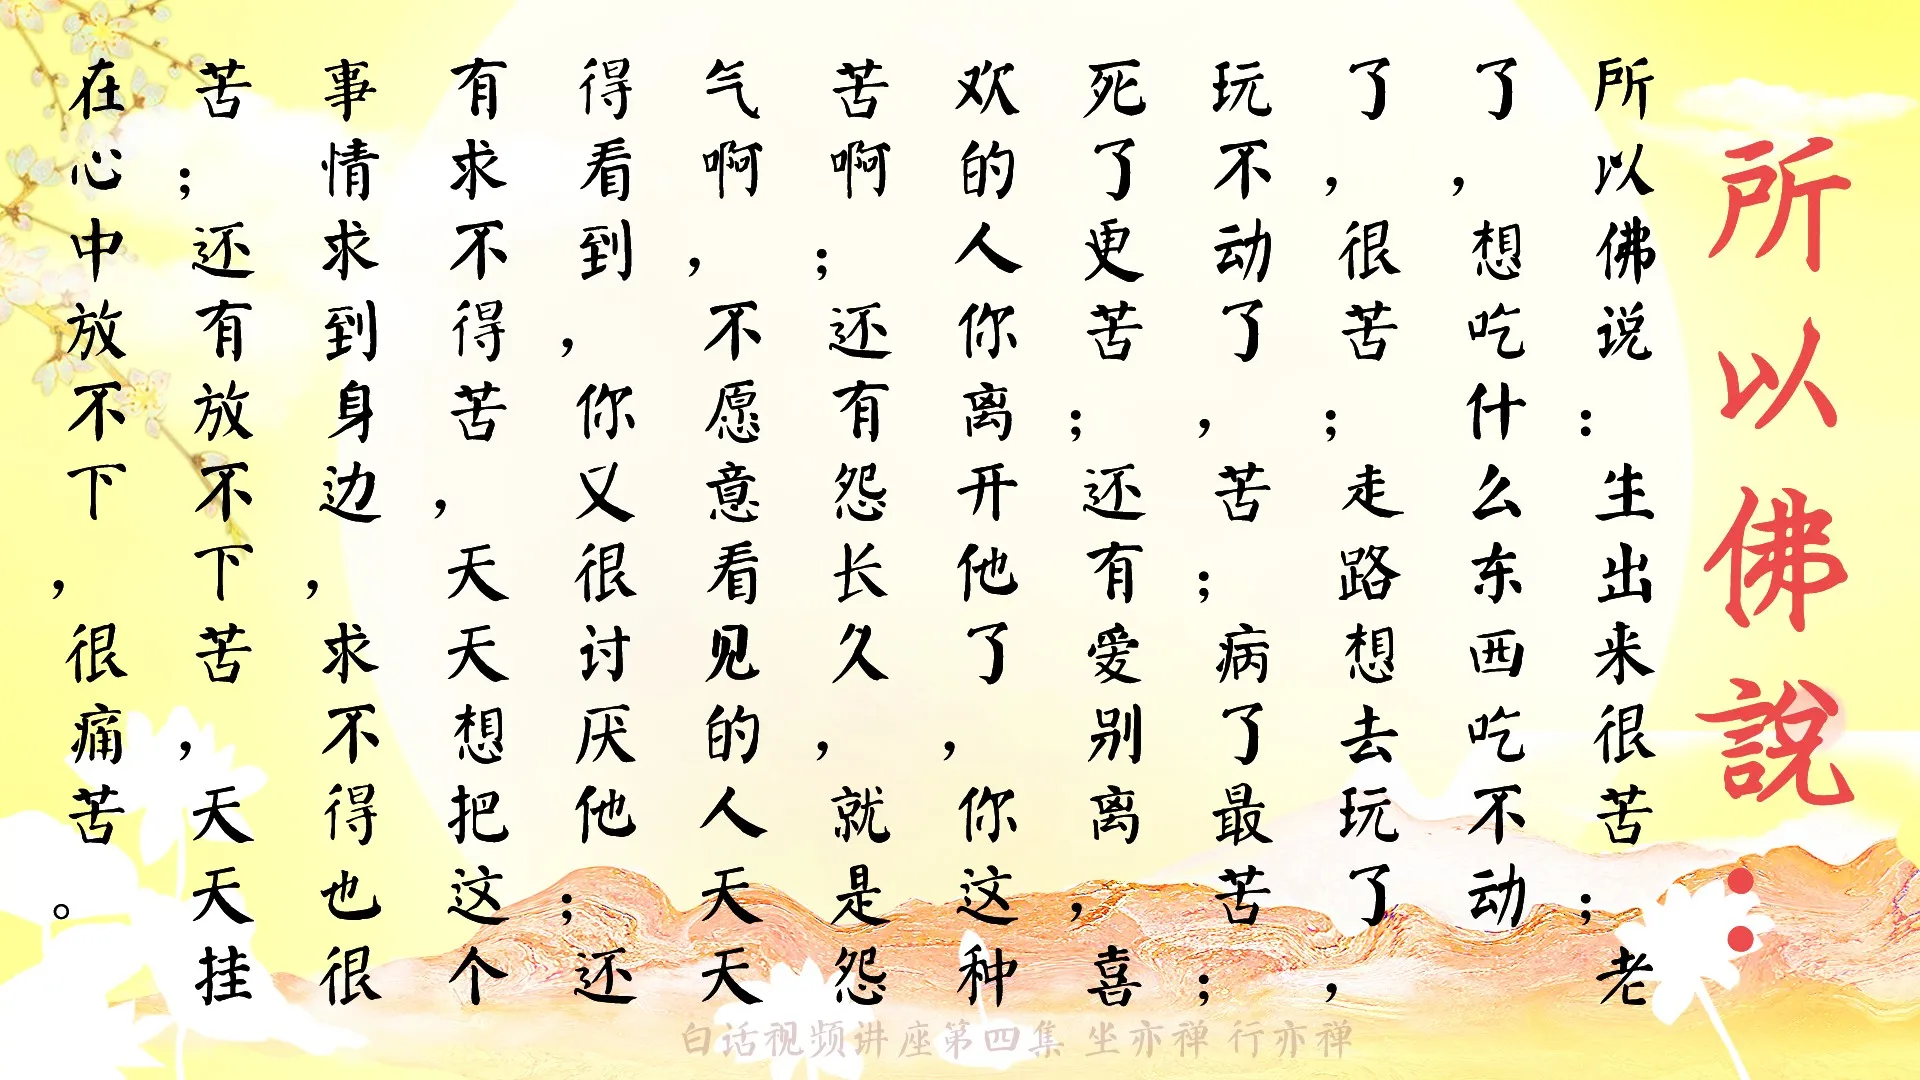 所以佛說：
所以佛说：生出来很苦；老
了，想吃什么东西吃不动
了，很苦；走路想去玩了，
玩不动了，苦；病了最苦；
死了更苦；还有爱别离，喜
欢的人你离开他了，你这种
苦啊；还有怨长久，就是怨
气啊，不愿意看见的人天天
得看到，你又很讨厌他；还
有求不得苦，天天想把这个
事情求到身边，求不得也很
苦；还有放不下苦，天天挂
在心中放不下，很痛苦。
白话视频讲座第四集 坐亦禅 行亦禅